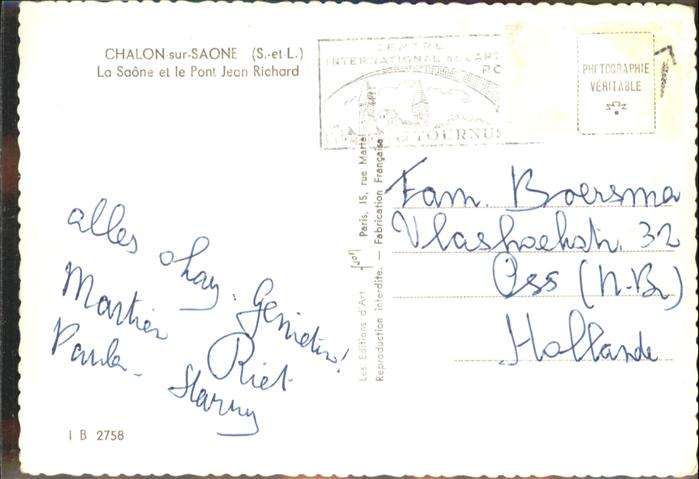 CHALON-sur-SAONE (S.-et L.)
La Saône et le Pont Jean Richard
CENTRE
INTERNATIONAL de L'ART
TOURNUS
PHOTOGRAPHIE
VÉRITABLE
alles okay. Genieten!
Martien Riet
Paula - Harry
Les Editions d'Art "JOF" Paris, 15, rue Martel
Reproduction interdite. - Fabrication Française
Fam. Boersma
Vlashoekstr. 32
Oss (N-Br)
Hollande
I B 2758